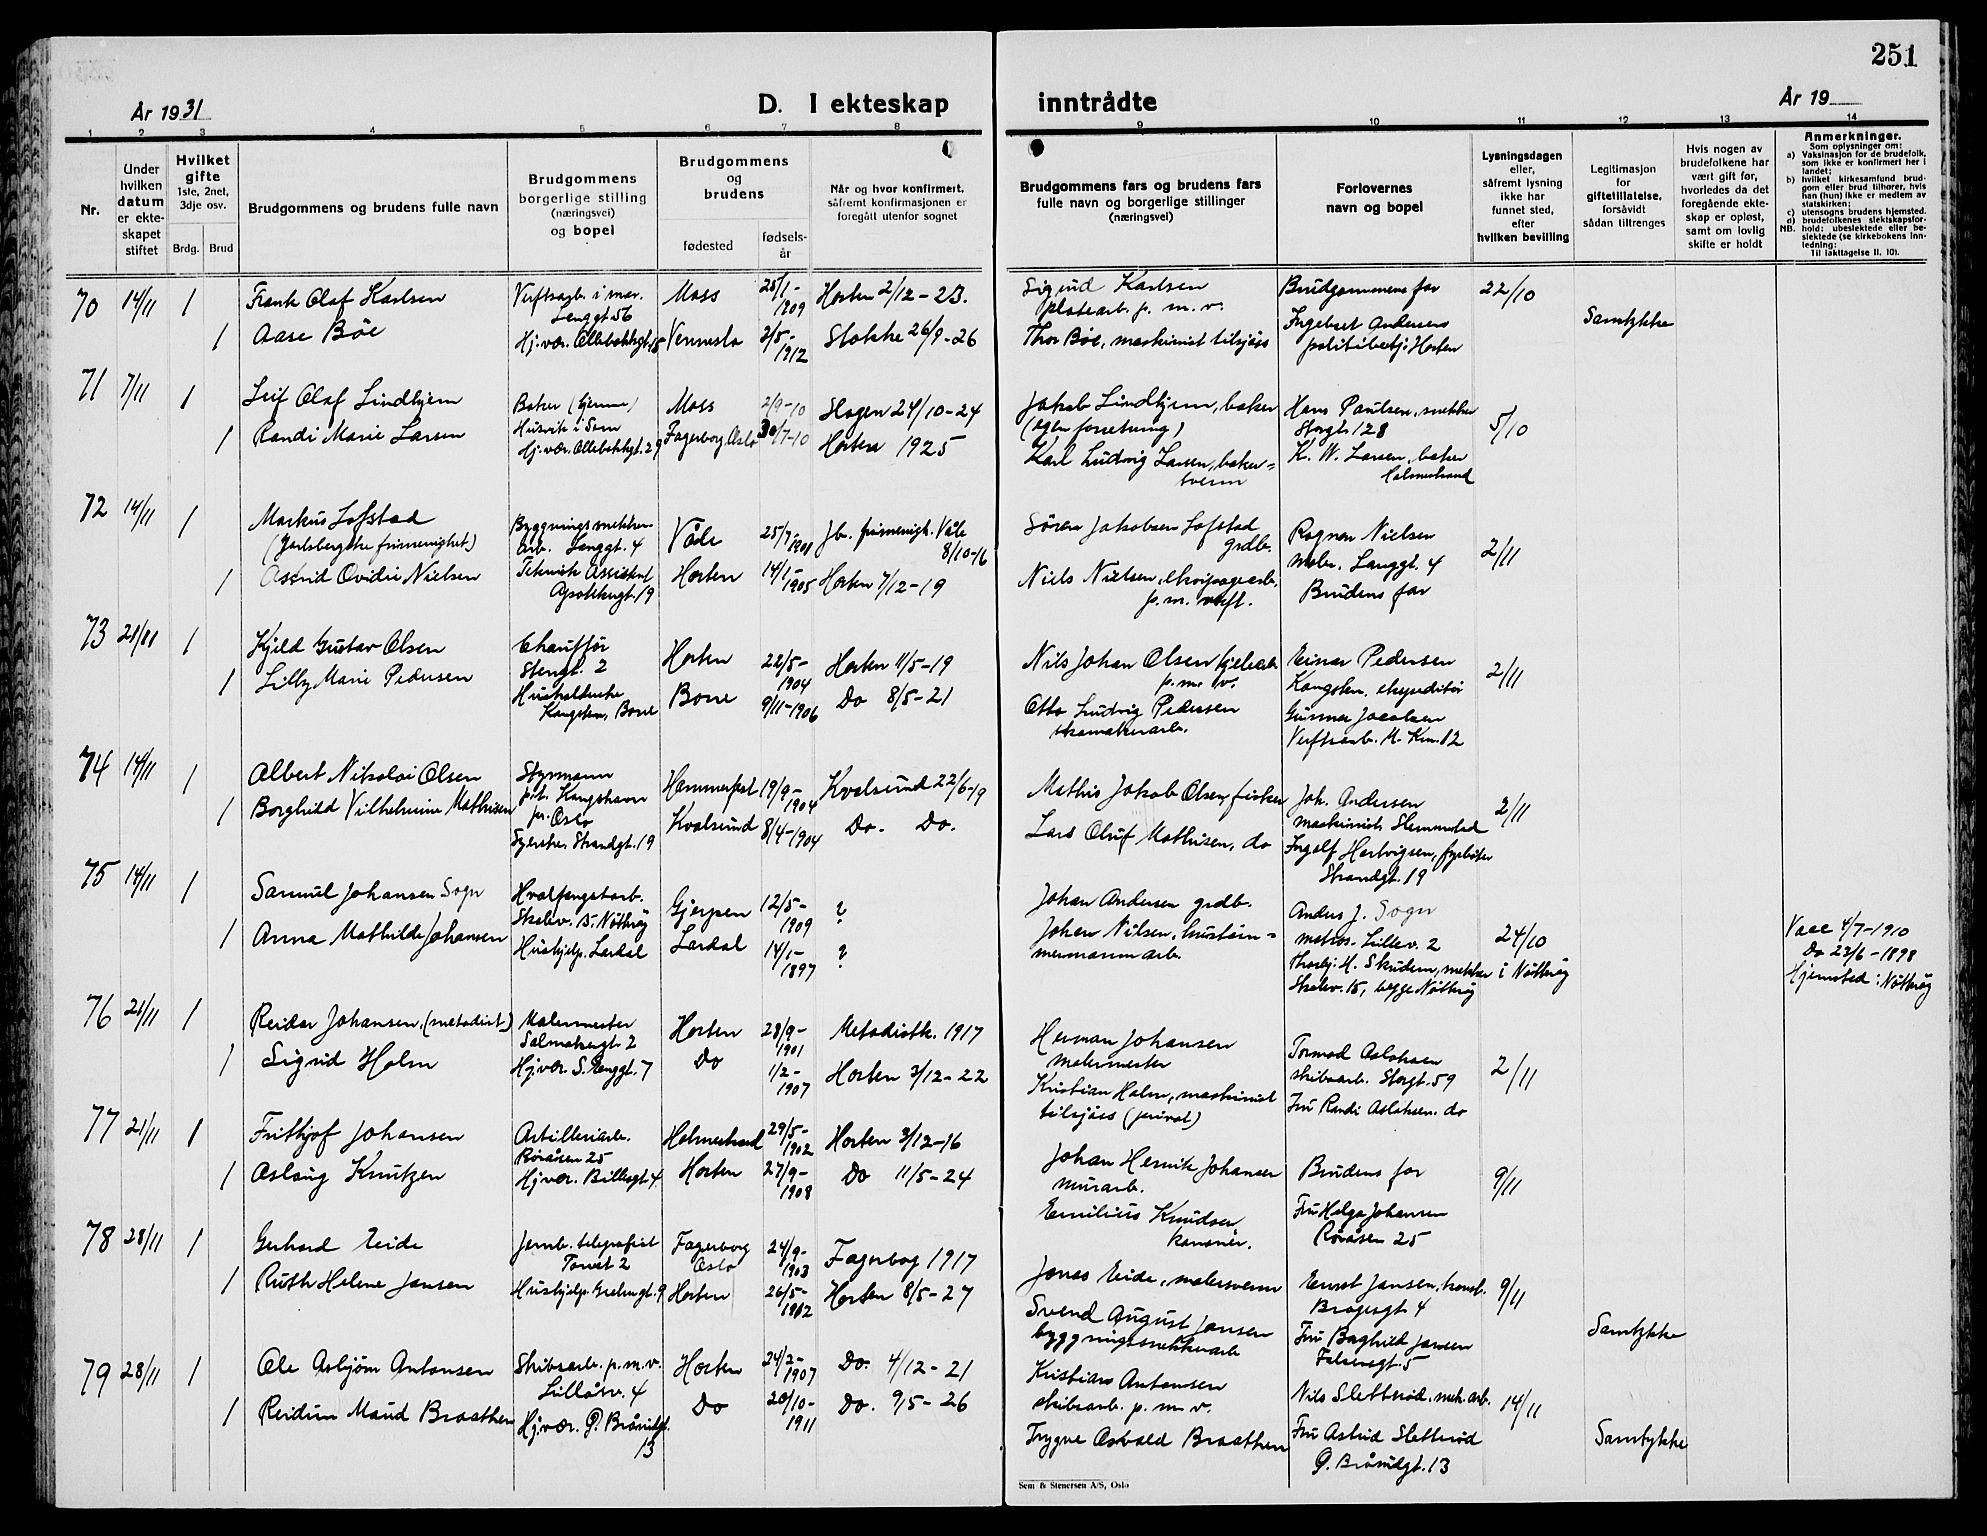 251
År 1931
D. I ekteskap inntrådte
År 19
1 2 3 4 5 6 7 8 9 10 11 12 13 14
Nr.
Under hvilken datum er ekteskapet stiftet
Hvilket gifte
1ste, 2net, 3dje osv.
Brdg. Brud
Brudgommens og brudens fulle navn
Brudgommens borgerlige stilling (næringsvei) og bopel
Brudgommens og brudens
fødested
fødselsår
Når og hvor konfirmert, såfremt konfirmasjonen er foregått utenfor sognet
Brudgommens fars og brudens fars fulle navn og borgerlige stillinger (næringsvei)
Forlovernes navn og bopel
Lysningsdagen eller, såfremt lysning ikke har funnet sted, efter hvilken bevilling
Legitimasjon for giftetillatelse, forsåvidt sådan tiltrenges
Hvis nogen av brudefolkene har vært gift før, hvorledes da det foregående ekteskap er opløst, samt om lovlig skifte er holdt
Anmerkninger.
Som oplysninger om:
a) Vaksinasjon for de brudefolk, som ikke er konfirmert her i landet;
b) hvilket kirkesamfund brudgom eller brud tilhører, hvis han (hun) ikke er medlem av statskirken;
c) utensogns brudens hjemsted.
d) brudefolkenes slektskapsforhold: ubeslektede eller beslektede (se kirkebokens innledning:
NB.
Til iakttagelse II. 10).
70 14/11 1 Frank Olaf Karlsen Verftsarb. i mar. Langgt 56 Moss 25/1-1909 Horten 2/12-23. Sigurd Karlsen platearb. p. m. v. Brudgommens far 22/10
1 Aase Böe Hj. vær. Ollebakkgt. 15 Vennesla 2/5-1912 Stokke 26/9-26 Thor Böe, maskinist tilsjøs Ingebret Andersen politibetj. Horten Samtykke
71 7/11 1 Leif Olaf Lindhjem Baker (hjemme) Husvik i Sem Moss 2/9-10 Slagen 24/10-24 Jakob Lindhjem, baker (egen forretning) Hans Paulsen, snekker Storgt. 128 5/10
1 Randi Marie Larsen Hj. vær. Ollebakkgt. 29 Fagerborg, Oslo 30/7-10 Horten 1925 Karl Ludvig Larsen, bakersvenn K. W. Larsen, baker Holmestrand
72 14/11 1 Markus Lofstad (Jarlsbergske frimenighet) Bygningssnekkerarb. Langgt. 4 Våle 25/7-1901 Jb. frimenigh. Våle 8/10-16 Sören Jakobsen Lofstad grdb. Ragnar Nielsen maler. Langgt. 4 2/11
1 Astrid Ovidie Nielsen Teknisk Assistent Apotekergt. 19 Horten 14/1-1905 Horten 7/12-19 Niels Nielsen, ekvipagearb. p. m. verft. Brudens far
73 21/11 1 Kjeld Gustav Olsen Chaufför Stengt. 2 Horten 22/5-1904 Horten 11/5-19 Nils Johan Olsen kjelearb. p. m. v. Einar Pedersen Kongsten, ekspeditör 2/11
1 Lilly Marie Pedersen Husholderske Kongsten, Borre Borre 9/11-1906 Do 8/5-21 Otto Ludvig Pedersen skomakerarb. Gunnar Jacobsen Verftsarb. M. Km. 12
74 14/11 1 Albert Nikolai Olsen Styrmann p.t. Kongshavn pr. Oslo Hammerfest 19/9-1904 Kvalsund 22/6-19 Mathis Jakob Olsen, fisker Joh. Andersen maskinist Slemmestad 2/11
1 Borghild Vilhelmine Mathisen Syerske, Strandgt. 19 Kvalsund 8/4-1904 Do. Do. Lars Oluf Mathisen, do Ingolf Hartvigsen, fyrbøter Strandgt. 19
75 14/11 1 Samuel Johansen Sogn Hvalfangstarb. Skolev. 15. Nötteröy Gjerpen 12/5-1909 ? Johan Andersen grdb. Anders J. Sogn matros. Lillev. 2 24/10 Vacc 4/7-1910
1 Anna Mathilde Johansen Hushjelp. Lardal Lardal 14/1-1897 ? Johan Nilsen, hustömmermannarb. Thorbj. M. Skuden, snekker Skolev. 15, begge Nötteröy i Nötteröy Do 23/6-1898 Hjemsted: Nötteröy
76 21/11 1 Reidar Johansen, (metodist) Malermester Salmakergt. 2 Horten 28/9-1901 Metodistk. 1917 Herman Johansen malermester Tormod Aslaksen skibsarb. Storgt. 59 2/11
1 Sigrid Holm Hj. vær. S. Langgt. 7 Do 1/2-1907 Horten 3/12-22 Kristian Holm, maskinist tilsjøss (privat) Fru Randi Aslaksen. do
77 21/11 1 Frithjof Johansen Artilleriarb. Röråsen 25 Holmestrand 29/5-1902 Horten 3/12-16 Johan Henrik Johansen murarb. Brudens far 9/11
1 Aslaug Knutzen Hj. vær. Billesgt. 4 Horten 27/9-1908 Do 11/5-24 Emilius Knudsen, kanonér. Fru Helga Johansen Röråsen 25
78 28/11 1 Gerhard Eide Jernb. telegrafist Torvet 2 Fagerborg Oslo 24/9-1903 Fagerborg 1917 Jonas Eide, malersvenn Ernst Jansen, Bragesgt. 4 9/11
1 Ruth Helene Jansen Hushjelp. Grebngt. 9 Horten 26/5-1912 Horten 8/5-27 Svend August Jansen byggningssnekkerarb Fru Borghild Jansen Falsensgt. 5 Samtykke
79 28/11 1 Ole Asbjörn Antonsen Skibsarb. p. m. v. Lillåsv. 4 Horten 24/2-1907 Do. 4/12-21 Kristian Antonsen skibsarb. p. m. v. Nils Sletteröd, mek. arb. 14/11
1 Reidun Maud Braathen Hj. vær. P. Bråvikgt. 13 Do 20/10-1911 Do. 9/5-26 Trygve Osvald Braathen Fru Astrid Sletteröd P. Bråvikgt. 13 Samtykke
Sem & Stenersen A/S, Oslo